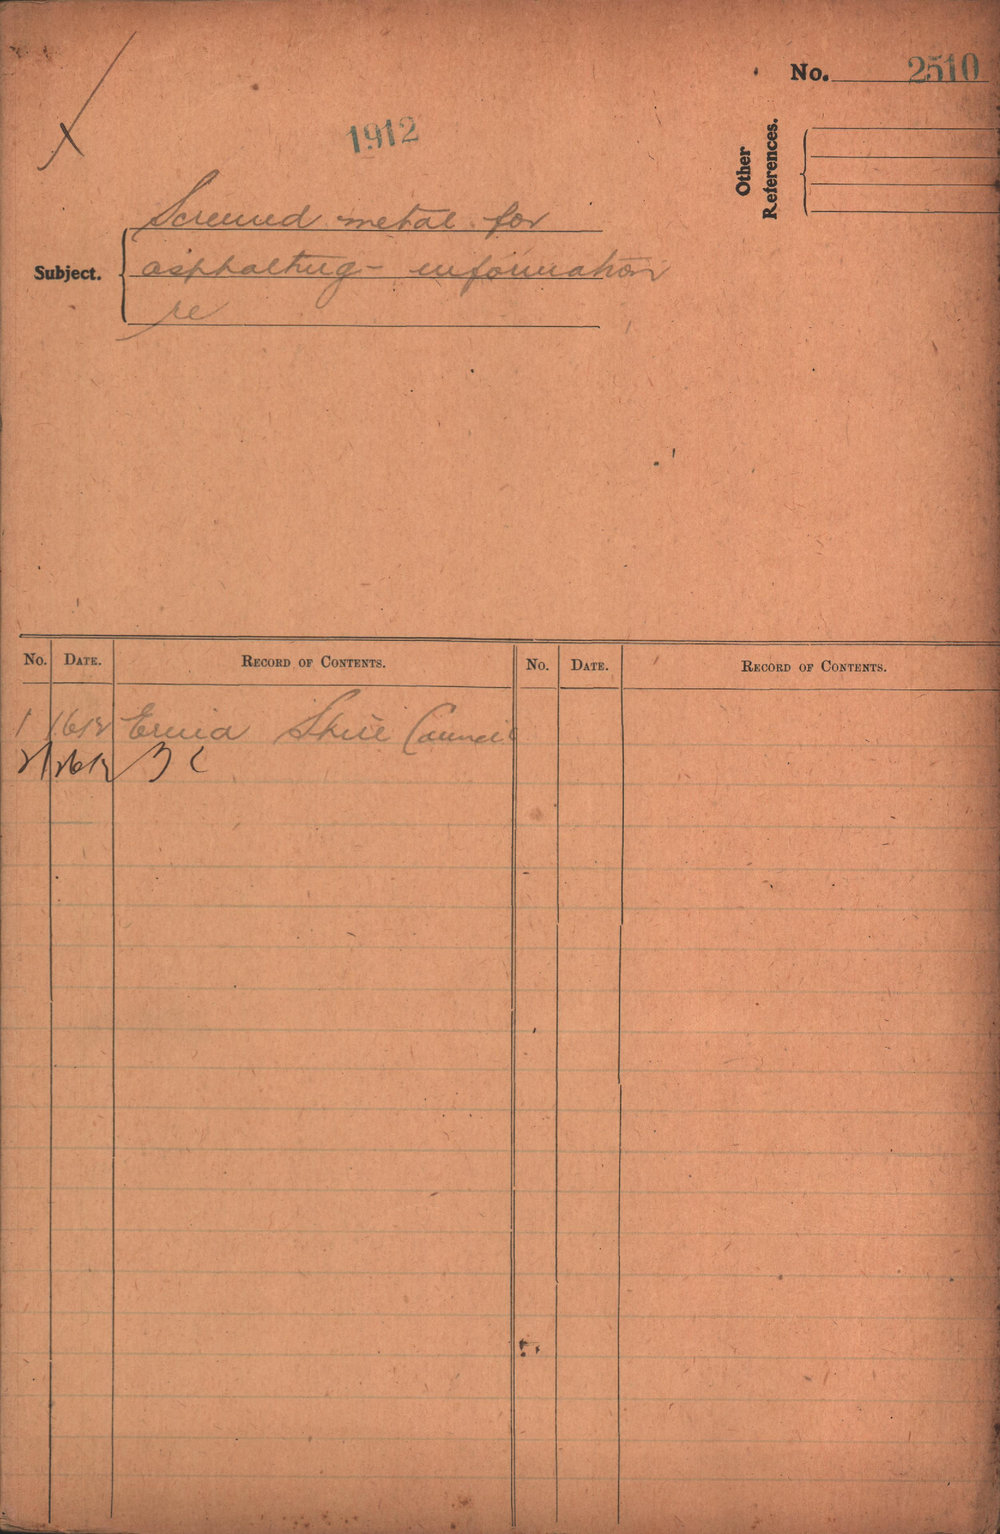 No. 2510
1912
Other
References.
Subject.
Screened metal for
asphalting - information
re
No. DATE. RECORD OF CONTENTS. No. DATE. RECORD OF CONTENTS.
1 Shire Council
2